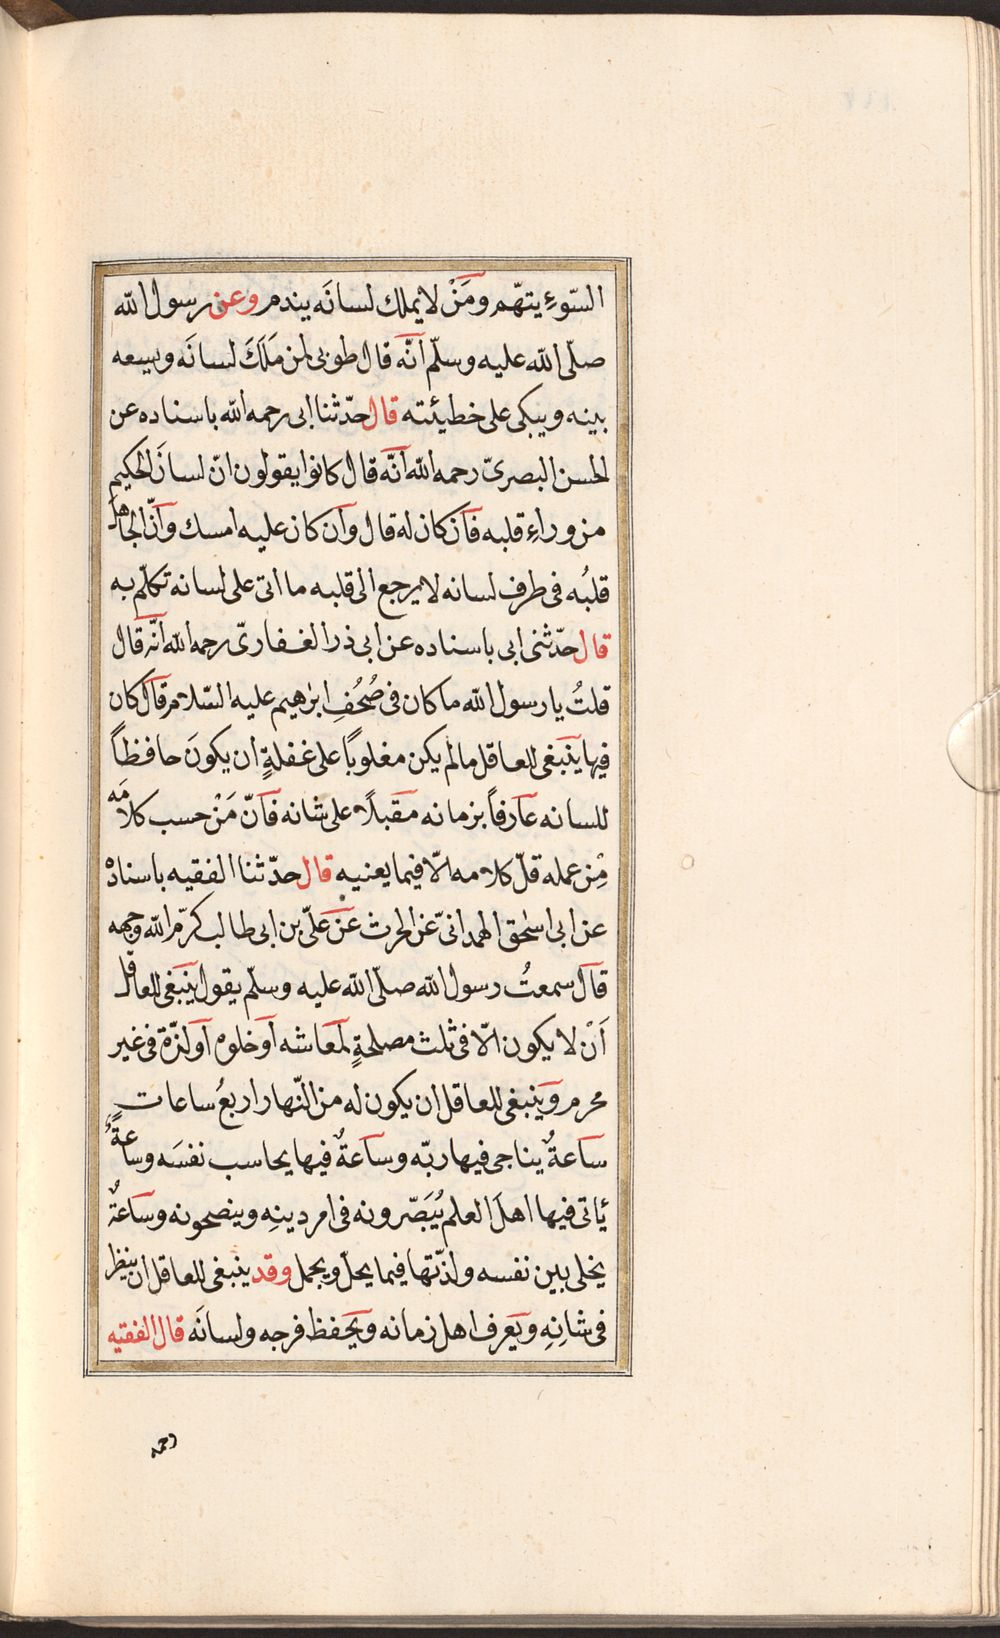 السّوءِ يتهّم ومَنْ لا يملك لسانَه يندم وعن رسول الله
صلّى الله عليه وسلّم انّه قال طوبى لمن مَلَكَ لسانَه وسعه
بيته ويبكى على خطيئته قال حدّثنا ابى رحمه الله باسناده عن
الحسن البصرىّ رحمه الله انّه قال كانوا يقولون انّ لسانَ الحكيم
من وراءِ قلبه فان كان له قال وان كان عليه امسك وانّ الجاهل
قلبُه فى طرف لسانه لا يرجع الى قلبه ما اتى على لسانه تكلّم به
قال حدّثنى ابى باسناده عن ابى ذر الغفارىّ رحمه الله انّه قال
قلتُ يا رسول الله ما كان فى صُحُفِ ابرٰهيم عليه السّلام قال كان
فيها ينبغى للعاقل ما لم يكن مغلوبًا على غفلةٍ ان يكونَ حافظاً
للسانه عارفاً بزمانه مقبلاً على شانه فانّ مَنْ حسب كلامَه
مِنْ عمله قلّ كلامه الّا فيما يعنيه قال حدّثنا الفقيه باسنادهْ
عن ابى اسٰحق الهمدانىّ عن الحرث عن علّى بن ابى طالب كرّم الله وجهه
قال سمعتُ رسول الله صلّى الله عليه وسلّم يقول ينبغى للعاقل
اَنْ لا يكون الّا فى ثلث مصلحةٍ لمعاشه او خلوه او لذّة فى غير
محرم وينبغى للعاقل ان يكون له من النّهار اربعُ ساعات
ساعةٌ يناجى فيها ربّه وساعةٌ فيها يحاسب نفسَه وساعةٌ
ئاتى فيها اهلَ العلم يُبَصّرونه فى امر دينِه وينصحونه وساعةٌ
يخلى بين نفسه ولذّتها فيما يحلّ ويجمل وقد ينبغى للعاقل ان ينظر
فى شانِهِ ويعرف اهل زمانه ويحفظ فرجه ولسانَه قال الفقيه
رحمه